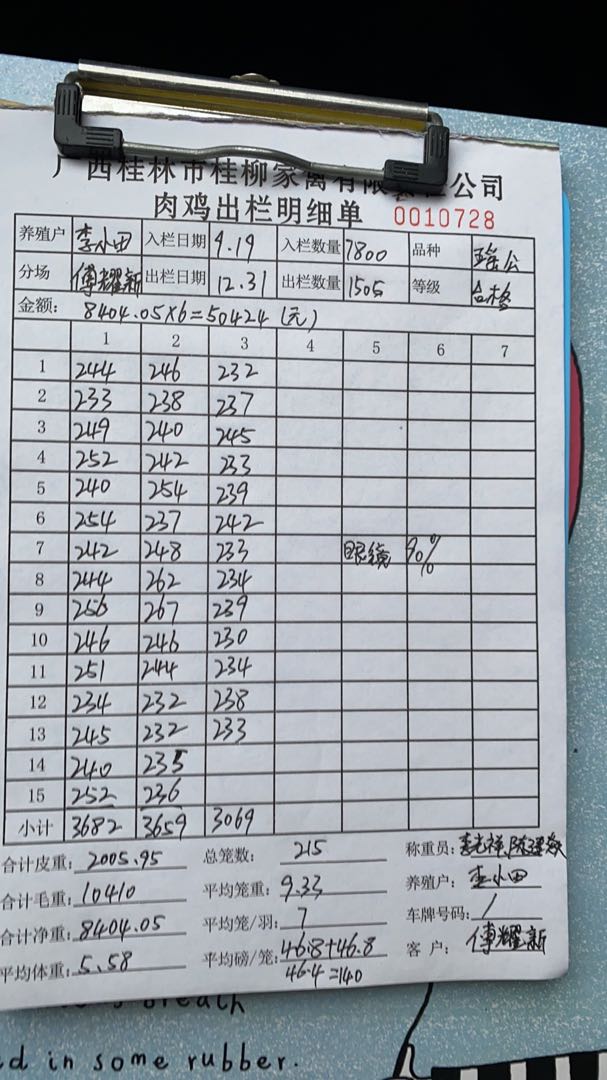 广西桂林市桂柳家禽有限 公司
肉鸡出栏明细单 0010728
养殖户 李小田 入栏日期 9.19 入栏数量 7800 品种 瑶公
分场 傅耀新 出栏日期 12.31 出栏数量 1505 等级 合格
金额: 8404.05×6=50424(元)
1 2 3 4 5 6 7
1 244 246 232
2 233 238 237
3 249 240 245
4 252 242 233
5 240 254 239
6 254 237 242
7 242 248 233 眼镜 90%
8 244 262 234
9 256 267 239
10 246 246 230
11 251 244 234
12 234 232 238
13 245 232 233
14 240 235
15 252 236
小计 3682 3659 3069
合计皮重: 2005.95 总笼数: 215 称重员:
合计毛重: 10410 平均笼重: 9.33 养殖户: 李小田
合计净重: 8404.05 平均笼/羽: 7 车牌号码: /
平均体重: 5.58 平均磅/笼: 46.8+46.8 客户: 傅耀新
46.4=140
breath
d in some rubber.